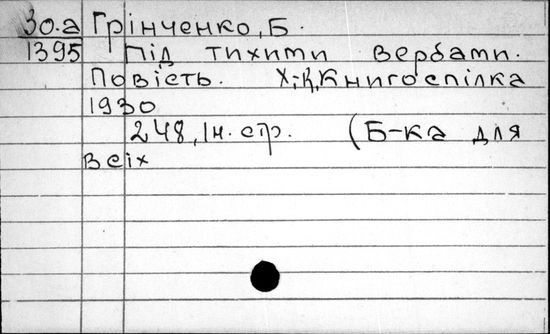 3о.а Грінченко, Б.
1395 Під тихими вербами.
Повість. Х.-К, Книгоспілка
1930
248, Ін. стр. (Б-ка для
всіх